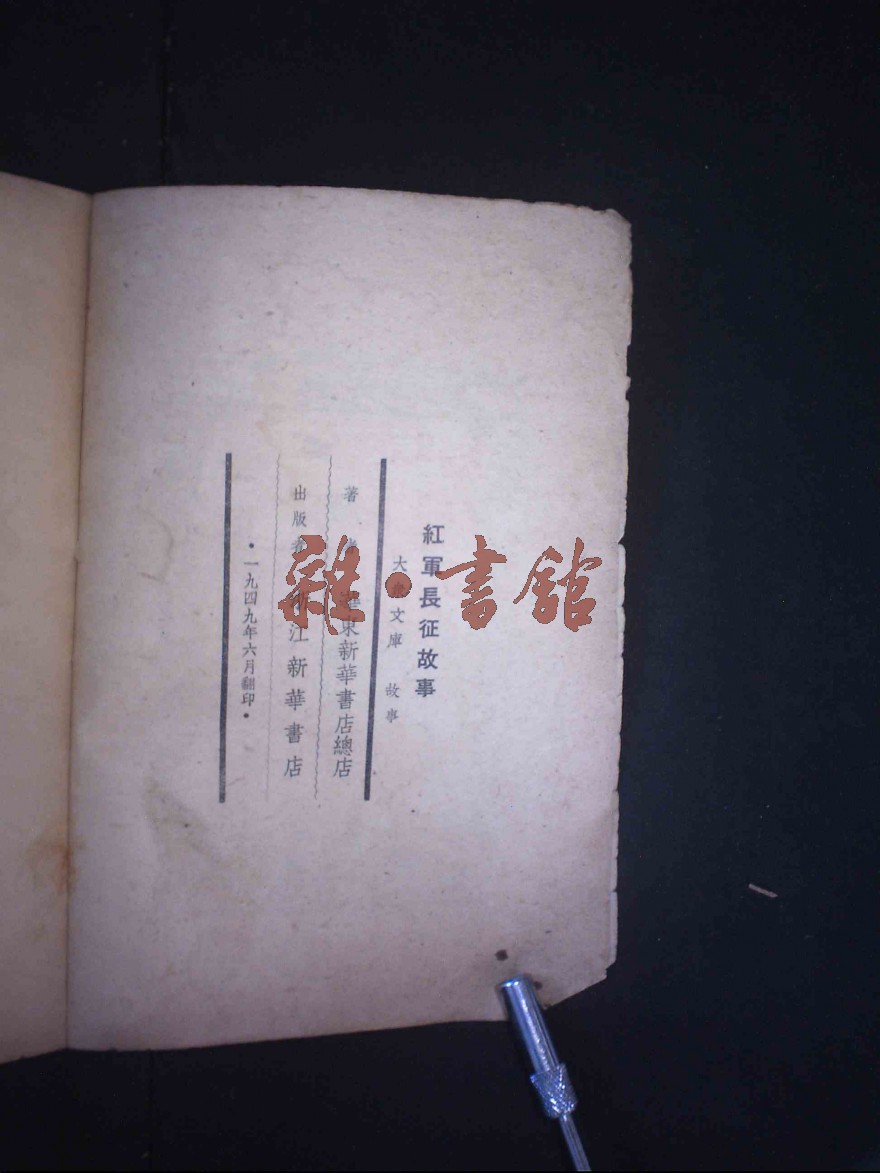 紅軍長征故事
大衆文庫 故事
著者 東新華書店總店
出版者 浙江新華書店
•一九四九年六月翻印•
雜•書館